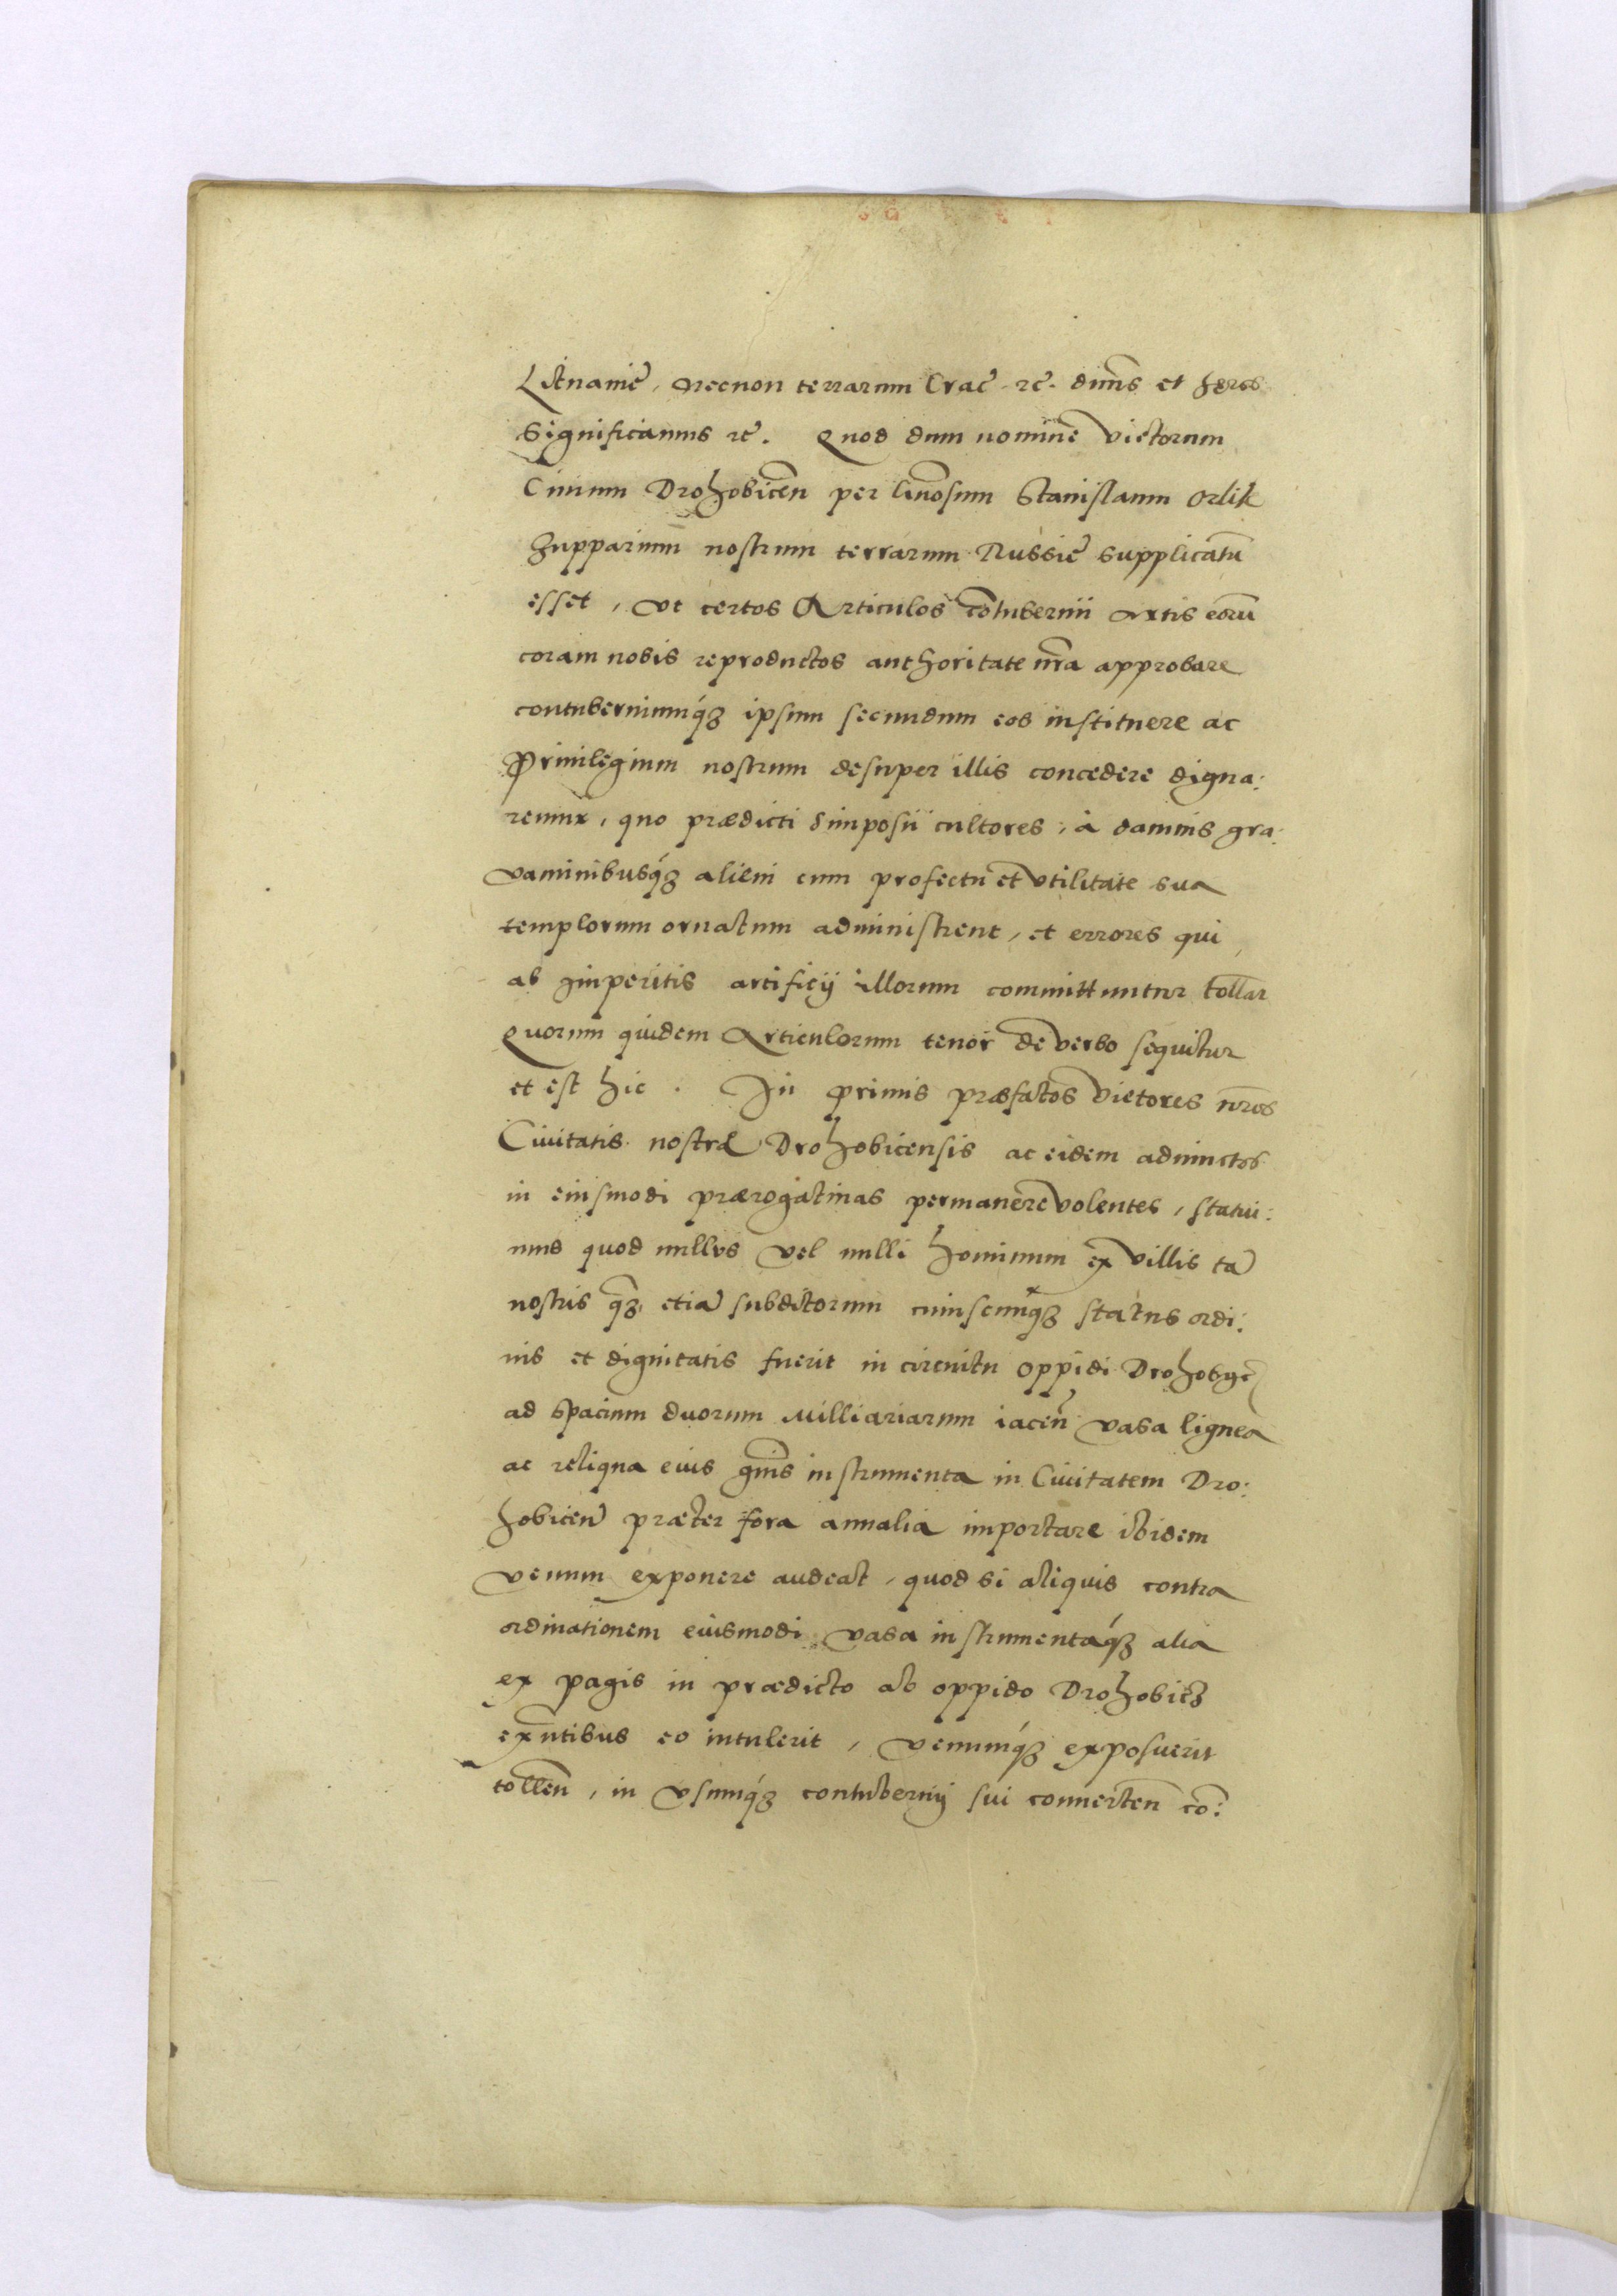 Lituaniē, Necnon terrarum Crac̄ rc̄. dnn̄s et heres
Significamus rc̄. Quod dum nomine Vietorum
Ciuium Drohobicen̄ per Gn̄osum Stanislaum Orlik
Zupparium nostrum terrarum Russiē supplicatū
esset, vt certos Articulos cōtubernii Artis eorū
coram nobis reproductos authoritate nr̄a approbare
contuberniumq́ꝫ ipsum secundum eos instituere ac
Priuilegium nostrum desuper illis concedere digna:
remur, quo prædicti simposii cultores, à damnis gra:
vaminibusq́ꝫ alieni cum profectu et vtilitate sua
templorum ornatum administrent, et errores qui
ab Imperitis artificij illorum committuntur tollār
Quorum quidem Articulorum tenor de verbo sequitur
et est hic. In primis præfatos Vietores nr̄os
Ciuitatis nostræ Drohobicensis ac eidem adiunctos
in eiusmodi prærogatiuas permanere volentes, statui:
mus quod nullus vel nulli hominum ex villis tā
nostris q̄ꝫ etiā subditorum cuiuscunq́ꝫ status ordi:
nis et dignitatis fuerit in circuitu oppidi Drohobyc̄
ad spacium duorum Milliariarum iacen̄ vasa lignea
ac reliqua eius gn̄is instrumenta in Ciuitatem Dro:
hobicen̄ præter fora annalia importare ibidem
venum exponere audeat, quod si aliquis contra
ordinationem eiusmodi vasa instrumentaq́ꝫ alia
ex pagis in prædicto ab oppido Drohobicz
exn̄tibus eo intulerit, venumq́ꝫ exposuerit
tollen̄, in vsumq́ꝫ contubernij sui conuerten̄ cō: